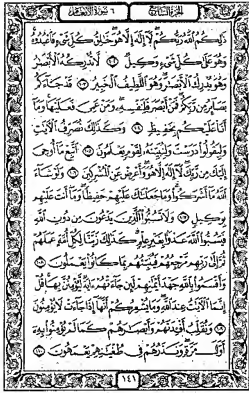 الجزء السابع ٦ سورة الأنعام
ذَٰلِكُمُ اللَّهُ رَبُّكُمْ لَا إِلَٰهَ إِلَّا هُوَ خَٰلِقُ كُلِّ شَيْءٍ فَاعْبُدُوهُ
وَهُوَ عَلَىٰ كُلِّ شَيْءٍ وَكِيلٌ ١٠٢ لَّا تُدْرِكُهُ الْأَبْصَٰرُ
وَهُوَ يُدْرِكُ الْأَبْصَٰرَ وَهُوَ اللَّطِيفُ الْخَبِيرُ ١٠٣ قَدْ جَاءَكُم
بَصَائِرُ مِن رَّبِّكُمْ فَمَنْ أَبْصَرَ فَلِنَفْسِهِ وَمَنْ عَمِيَ فَعَلَيْهَا وَمَا
أَنَا عَلَيْكُم بِحَفِيظٍ ١٠٤ وَكَذَٰلِكَ نُصَرِّفُ الْآيَٰتِ
وَلِيَقُولُوا دَرَسْتَ وَلِنُبَيِّنَهُ لِقَوْمٍ يَعْلَمُونَ ١٠٥ اتَّبِعْ مَا أُوحِيَ
إِلَيْكَ مِن رَّبِّكَ لَا إِلَٰهَ إِلَّا هُوَ وَأَعْرِضْ عَنِ الْمُشْرِكِينَ ١٠٦ وَلَوْ شَاءَ
اللَّهُ مَا أَشْرَكُوا وَمَا جَعَلْنَٰكَ عَلَيْهِمْ حَفِيظًا وَمَا أَنتَ عَلَيْهِم
بِوَكِيلٍ ١٠٧ وَلَا تَسُبُّوا الَّذِينَ يَدْعُونَ مِن دُونِ اللَّهِ
فَيَسُبُّوا اللَّهَ عَدْوًا بِغَيْرِ عِلْمٍ كَذَٰلِكَ زَيَّنَّا لِكُلِّ أُمَّةٍ عَمَلَهُمْ
ثُمَّ إِلَىٰ رَبِّهِم مَّرْجِعُهُمْ فَيُنَبِّئُهُم بِمَا كَانُوا يَعْمَلُونَ ١٠٨
وَأَقْسَمُوا بِاللَّهِ جَهْدَ أَيْمَٰنِهِمْ لَئِن جَاءَتْهُمْ آيَةٌ لَّيُؤْمِنُنَّ بِهَا قُلْ
إِنَّمَا الْآيَٰتُ عِندَ اللَّهِ وَمَا يُشْعِرُكُمْ أَنَّهَا إِذَا جَاءَتْ لَا يُؤْمِنُونَ
١٠٩ وَنُقَلِّبُ أَفْـِٔدَتَهُمْ وَأَبْصَٰرَهُمْ كَمَا لَمْ يُؤْمِنُوا بِهِ
أَوَّلَ مَرَّةٍ وَنَذَرُهُمْ فِي طُغْيَٰنِهِمْ يَعْمَهُونَ ١١٠
١٤١